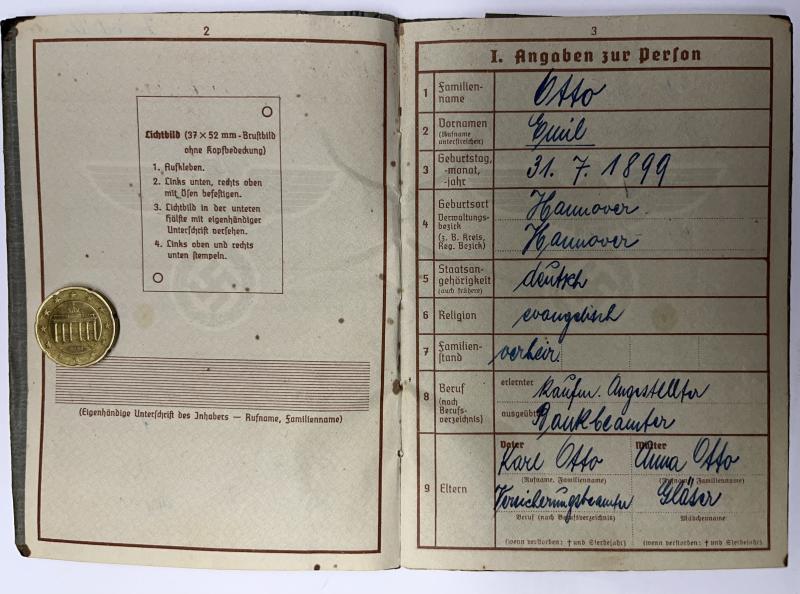 2
Lichtbild (37 × 52 mm - Brustbild
ohne Kopfbedeckung)
1. Aufkleben.
2. Links unten, rechts oben
mit Ösen befestigen.
3. Lichtbild in der unteren
Hälfte mit eigenhändiger
Unterschrift versehen.
4. Links oben und rechts
unten stempeln.
(Eigenhändige Unterschrift des Inhabers — Rufname, Familienname)
3
I. Angaben zur Person
1 Familien-
name
Otto
2 Vornamen
(Rufname
unterstreichen)
Emil
3 Geburtstag,
-monat,
-jahr
31. 7. 1899
4 Geburtsort
Verwaltungs-
bezirk
(z. B. Kreis,
Reg. Bezirk)
Hannover
Hannover
5 Staatsan-
gehörigkeit
(auch frühere)
deutsch
6 Religion
evangelisch
7 Familien-
stand
verheir.
8 Beruf
(nach
Berufs-
verzeichnis)
erlernter
kaufm. Angestellter
ausgeübter
Bankbeamter
9 Eltern
Vater
Karl Otto
(Rufname, Familienname)
Versicherungsbeamter
Beruf (nach Berufsverzeichnis)
(wenn verstorben: † und Sterbejahr)
Mutter
Anna Otto
(Rufname, Familienname)
Gläser
Mädchenname
(wenn verstorben: † und Sterbejahr)